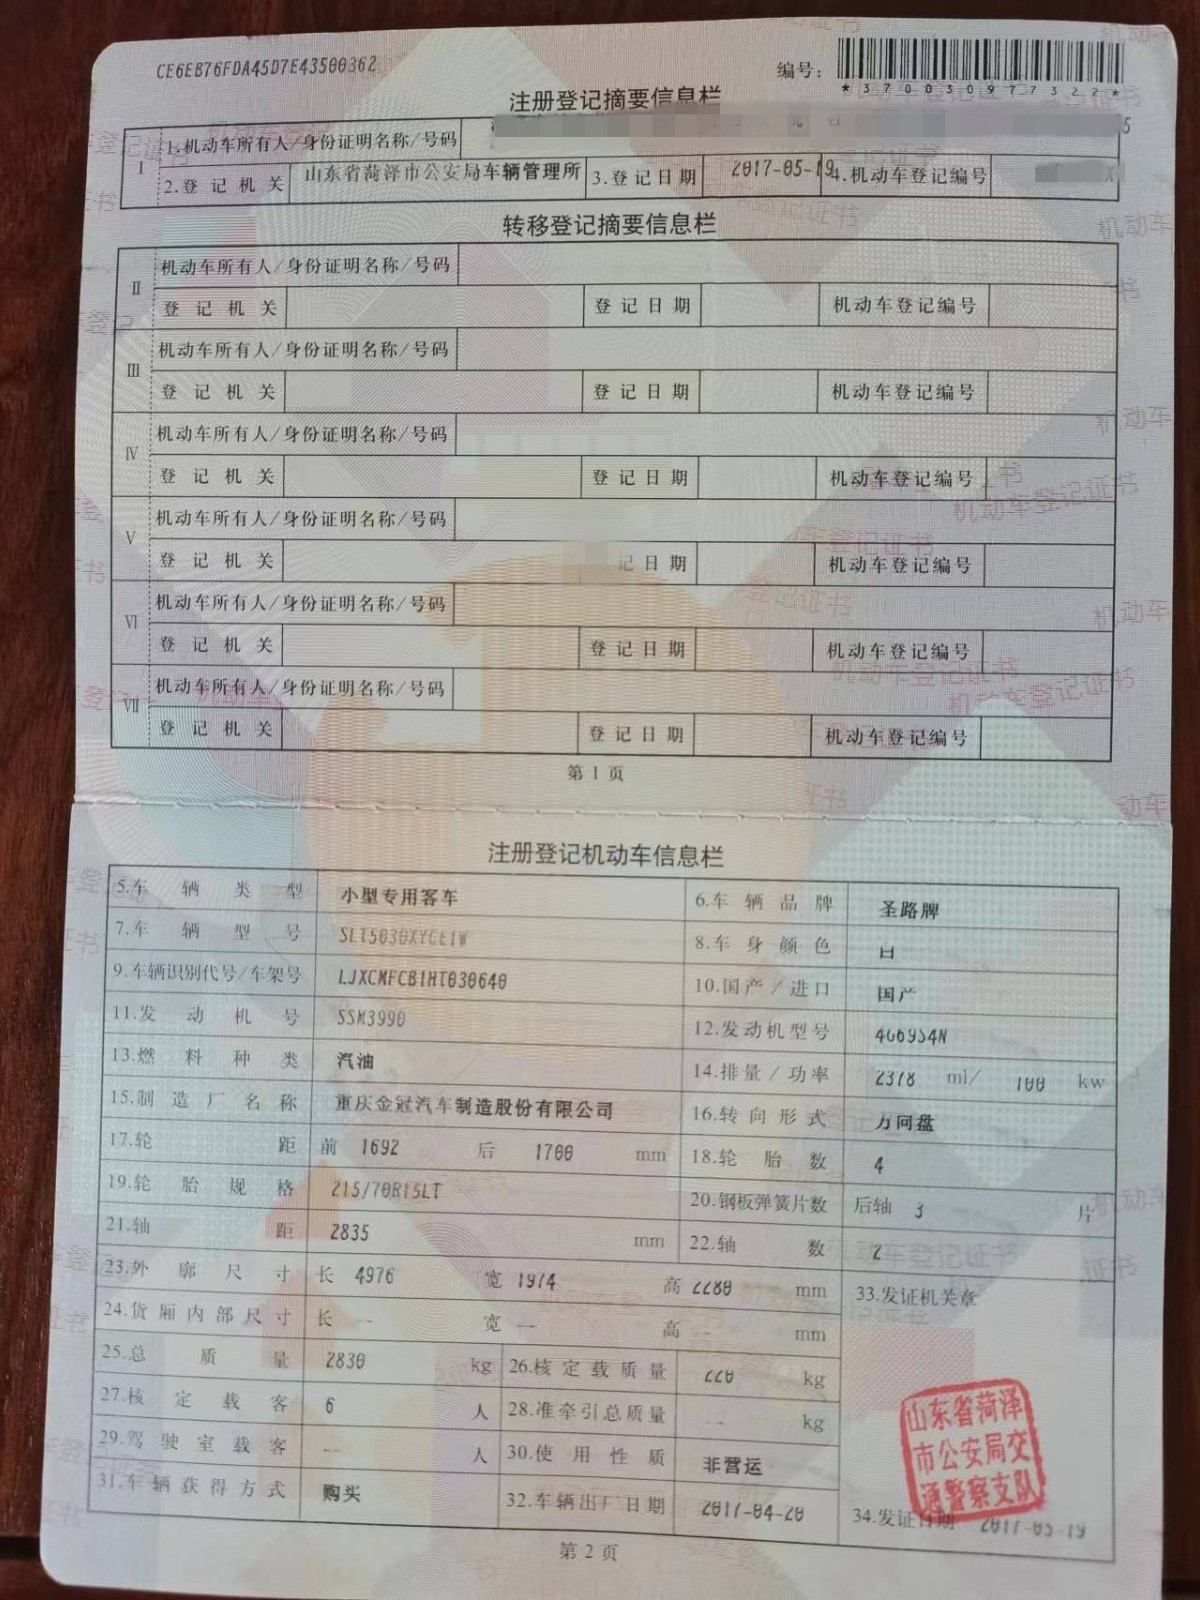 CE6EB76FDA45D7E43500362
编号：
*370030977322*
注册登记摘要信息栏
Ⅰ
1.机动车所有人/身份证明名称/号码
5
2.登记机关 山东省菏泽市公安局车辆管理所 3.登记日期 2017-05-19 4.机动车登记编号
转移登记摘要信息栏
Ⅱ
机动车所有人/身份证明名称/号码
登记机关 登记日期 机动车登记编号
Ⅲ
机动车所有人/身份证明名称/号码
登记机关 登记日期 机动车登记编号
Ⅳ
机动车所有人/身份证明名称/号码
登记机关 登记日期 机动车登记编号
Ⅴ
机动车所有人/身份证明名称/号码
登记机关 记日期 机动车登记编号
Ⅵ
机动车所有人/身份证明名称/号码
登记机关 登记日期 机动车登记编号
Ⅶ
机动车所有人/身份证明名称/号码
登记机关 登记日期 机动车登记编号
第1页
注册登记机动车信息栏
5.车辆类型 小型专用客车 6.车辆品牌 圣路牌
7.车辆型号 SLT5030XYCE1W 8.车身颜色 白
9.车辆识别代号/车架号 LJXCMFCB1HT030640 10.国产/进口 国产
11.发动机号 SSM3990 12.发动机型号 4G69S4N
13.燃料种类 汽油 14.排量/功率 2378 ml/ 100 kw
15.制造厂名称 重庆金冠汽车制造股份有限公司 16.转向形式 方向盘
17.轮距 前 1692 后 1700 mm 18.轮胎数 4
19.轮胎规格 215/70R15LT 20.钢板弹簧片数 后轴 3 片
21.轴距 2835 mm 22.轴数 2
23.外廓尺寸 长 4976 宽 1974 高 2280 mm 33.发证机关章
24.货厢内部尺寸 长 -- 宽 -- 高 -- mm
25.总质量 2830 kg 26.核定载质量 220 kg
27.核定载客 6 人 28.准牵引总质量 -- kg
29.驾驶室载客 -- 人 30.使用性质 非营运
31.车辆获得方式 购买 32.车辆出厂日期 2017-04-20 34.发证日期 2017-05-19
山东省菏泽
市公安局交
通警察支队
第2页